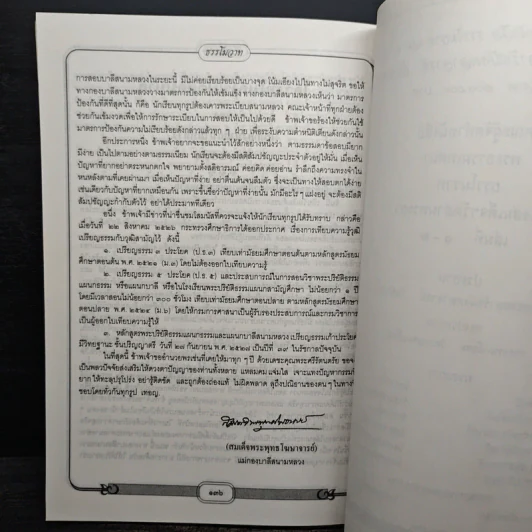 ธรรโมวาท
การสอบบาลีสนามหลวงในระยะนี้ มีไม่ค่อยเรียบร้อยเป็นบางจุด โน้มเอียงไปในทางไม่สุจริต ขอให้
ทางกองบาลีสนามหลวงวางมาตรการป้องกันให้เข้มแข็ง ทางกองบาลีสนามหลวงเห็นว่า มาตรการ
ป้องกันที่ดีที่สุดนั้น ก็คือ นักเรียนทุกรูปต้องเคารพระเบียบสนามหลวง คณะเจ้าหน้าที่ทุกฝ่ายต้อง
ช่วยกันเข้มงวดเพื่อให้การรักษาระเบียบในการสอบให้เป็นไปด้วยดี ข้าพเจ้าขอร้องให้ช่วยกันใช้
มาตรการป้องกันความไม่เรียบร้อยดังกล่าวแล้วทุก ๆ ฝ่าย เพื่อระงับความตำหนิติเตียนดังกล่าวนั้น
อีกประการหนึ่ง ข้าพเจ้าอยากจะขอแนะนำไว้สักอย่างหนึ่งว่า ตามธรรมดาข้อสอบมียาก
มีง่าย เป็นไปตามอย่างตามธรรมเนียม นักเรียนจะต้องมีสติสัมปชัญญะประจำตัวอยู่ให้มั่น เมื่อเห็น
ปัญหาที่ยากอย่าตระหนกตกใจ พยายามตั้งสติอารมณ์ ค่อยคิด ค่อยอ่าน รำลึกถึงความทรงจำใน
หนหลังตามที่เคยผ่านมา เมื่อเห็นปัญหาที่ง่าย อย่าตื่นเต้นจนลืมตัว ซึ่งจะเป็นทางให้สอบตกได้ง่าย
เช่นเดียวกับปัญหาที่ยากเหมือนกัน เพราะขึ้นชื่อว่าปัญหาที่ง่ายนั้น มักมีอะไร ๆ แฝงอยู่ จะต้องมีสติ
สัมปชัญญะกำกับตัวไว้ อย่าได้ประมาททีเดียว
อนึ่ง ข้าพเจ้ามีข่าวที่น่าชื่นชมโสมนัสที่ควรจะแจ้งให้นักเรียนทุกรูปได้รับทราบ กล่าวคือ
เมื่อวันที่ ๒๒ สิงหาคม ๒๕๒๖ กระทรวงศึกษาธิการได้ออกประกาศ เรื่องการเทียบความรู้วุฒิ
เปรียญธรรมกับวุฒิสามัญไว้ ดังนี้
๑. เปรียญธรรม ๓ ประโยค (ป.ธ.๓) เทียบเท่ามัธยมศึกษาตอนต้นตามหลักสูตรมัธยม
ศึกษาตอนต้น พ.ศ. ๒๕๒๑ (ม.๓) โดยไม่ต้องออกใบเทียบความรู้
๒. เปรียญธรรม ๕ ประโยค (ป.ธ. ๕) และประสบการณ์ในการสอนวิชาพระปริยัติธรรม
แผนกธรรม หรือแผนกบาลี หรือในโรงเรียนพระปริยัติธรรมแผนกสามัญศึกษา ไม่น้อยกว่า ๑ ปี
โดยมีเวลาสอนไม่น้อยกว่า ๓๐๐ ชั่วโมง เทียบเท่ามัธยมศึกษาตอนปลาย ตามหลักสูตรมัธยมศึกษา
ตอนปลาย พ.ศ. ๒๕๒๔ (ม.๖) โดยให้กรมการศาสนาเป็นผู้รับรองประสบการณ์และกรมวิชาการ
เป็นผู้ออกใบเทียบความรู้ให้
๓. หลักสูตรพระปริยัติธรรมแผนกธรรมและแผนกบาลีสนามหลวง เปรียญธรรมเก้าประโยค
มีวิทยฐานะ ชั้นปริญญาตรี วันที่ ๒๘ กันยายน พ.ศ. ๒๕๒๗ เป็นปีที่ ๓๙ ในรัชกาลปัจจุบัน
ในที่สุดนี้ ข้าพเจ้าขออำนวยพรเช่นที่เคยให้มาทุก ๆ ปี ด้วยเดชะคุณพระศรีรัตนตรัย ขอจง
เป็นพลวปัจจัยส่งเสริมให้ดวงตาปัญญาของท่านทั้งหลาย แหลมคม แจ่มใส เจาะแทงปัญหากรรมที่
ยาก ให้ทะลุปรุโปร่ง อย่ารู้ติดขัด และถูกต้องถ่องแท้ ไม่ผิดพลาด ลุถึงปณิธานของตน ๆ ในทางที่
ชอบโดยทั่วกันทุกรูป เทอญ.
(สมเด็จพระพุทธโฆษาจารย์)
แม่กองบาลีสนามหลวง
๑๓๖